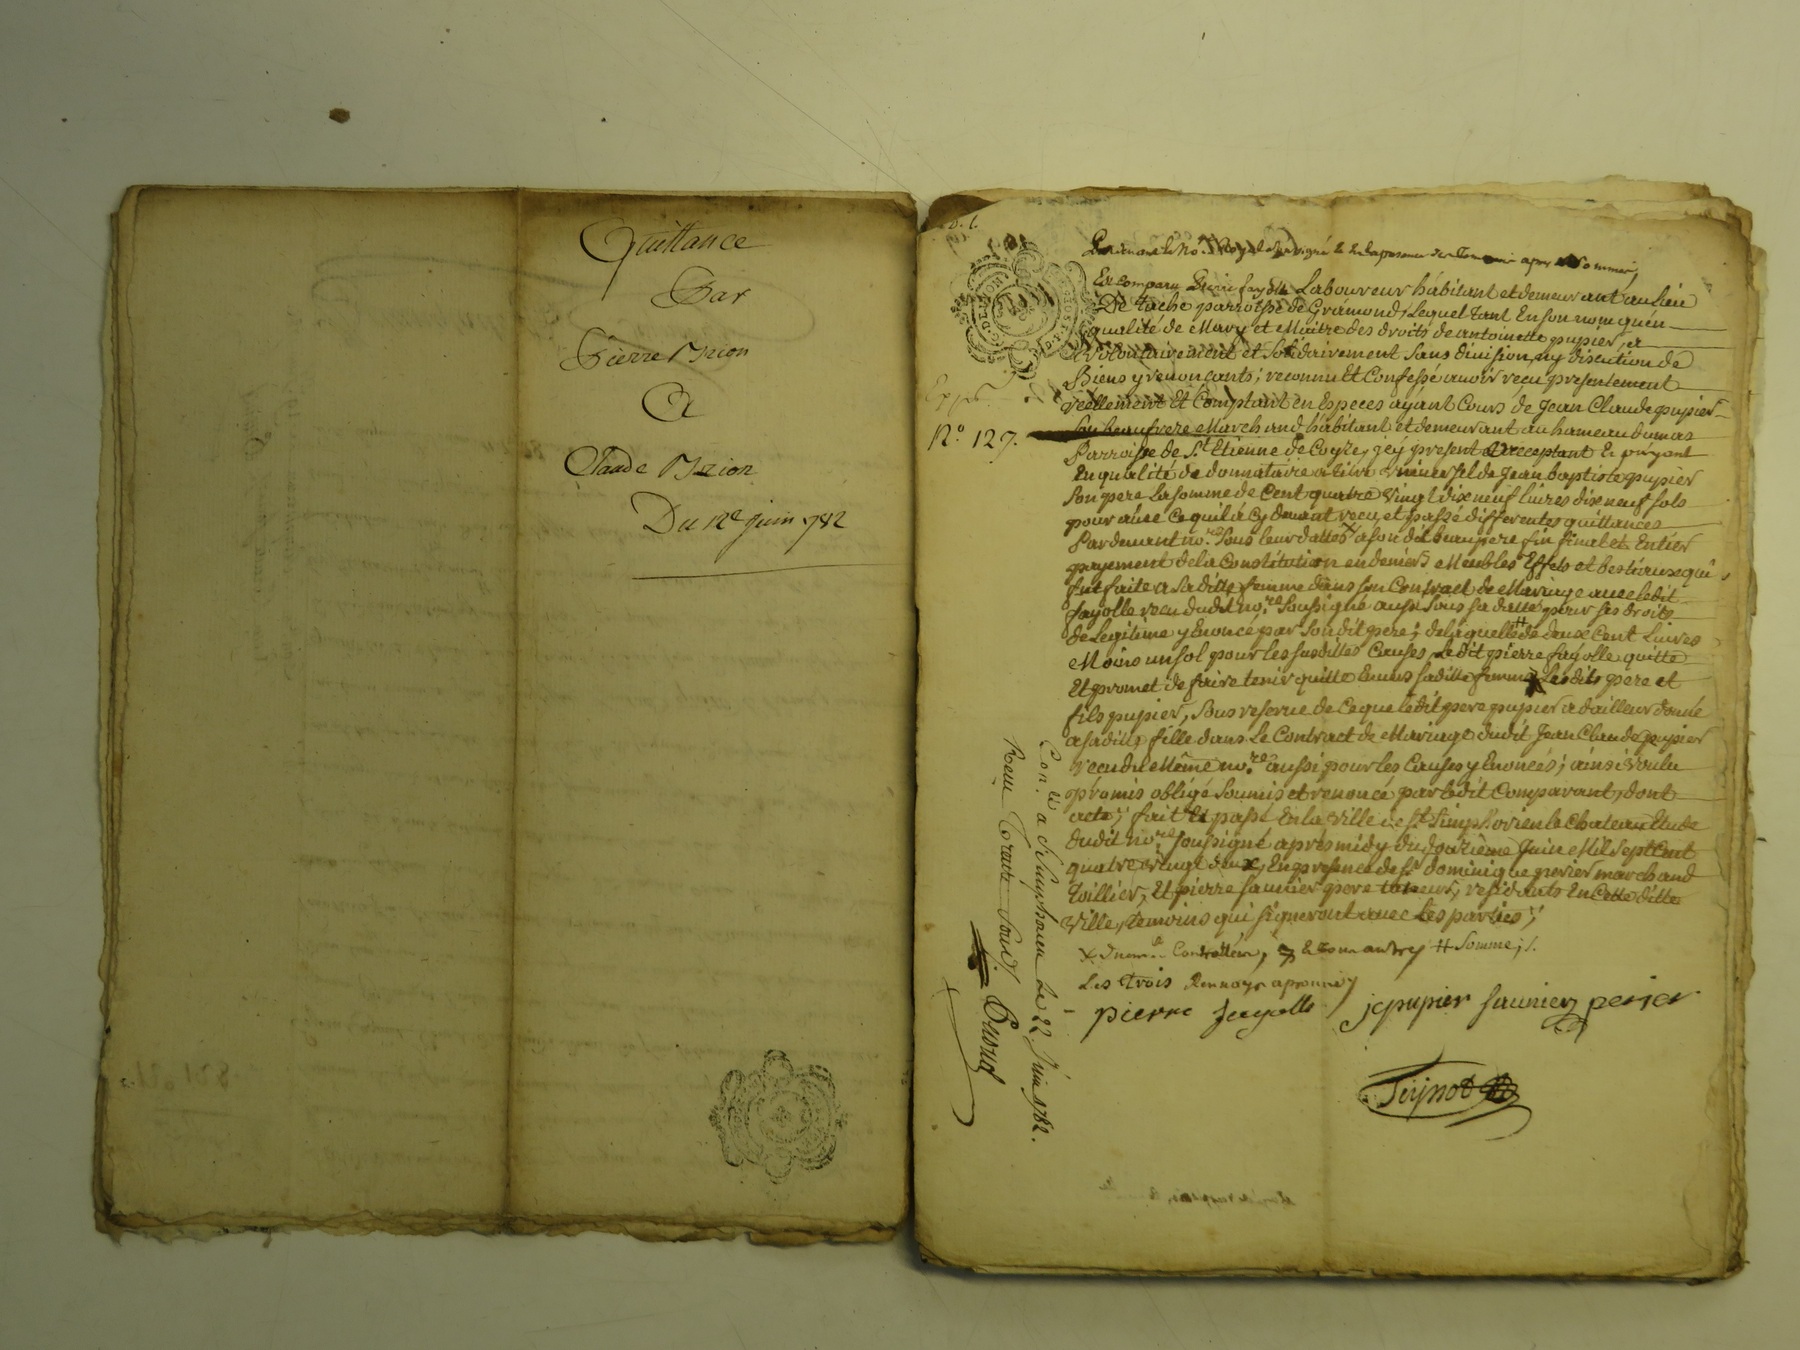 Quittance
Par
Pierre
A
Claude
Du 12e juin 1782
Nº. 127.
Pardevant le No.re Royal soussigné & en la presence des Temoins apres nommés,
Est Comparu Pierre fayolle Laboureur hábitant et demeurant au Lieu
De parroisse de Grámond, Lequel tant En son nom quén
qualité de Mary et Maitre des droits de antoinette pupier, a
Volontairement et Solidairement Sans division, ny discution de
Biens y renonçants, reconnu Et Confessé avoir reçu presentement
réellement Et Comptant en Especes ayant Cours de Jean Claude pupier
Son beaufrere Marchand hábitant et demeurant au hameau dumas
Parroisse de St. Etienne de Coyze, jcy present Et acceptant Et payant
En qualité de donnataire a titre universel de Jean baptiste pupier
Son pere La somme de Cent quatre vingt dix neuf livres dix neuf sols
pour avec Ce quil a Cy devant reçu et passé differentes quittances
Pardevant no.re Sous leurs dattes x a son dit beaupere fin final et Entier
payement de la Constitution en deniers Meubles Effets et bestiaux qui
fut faite a Sa ditte femme dans son Contract de Mariage avec ledit
fayolle reçu dudit no.re Soussigné aussi Sous sa datte pour ses droits
de Legitime y Enoncé par Son dit pere; de laquelle # de deux Cent Livres
Moins un sol pour les susdittes Causes Le dit pierre fayolle quitte
Et promet de faire tenir quitte Envers sa ditte femme Lesdits pere et
fils pupier, Sous reserve de Ce que le dit pere pupier a d'ailleur donné
a sa ditte fille dans Le Contract de Mariage dudit Jean Claude pupier
reçu du Même no.re aussi pour les Causes y Enoncés; ainsi voulu
promis obligé Soumis et renoncé par le dit Comparant, dont
acte; fait Et passé En la ville de St. Simphorien le Chateau Etude
dudit no.re Soussigné après midy du douzieme Juin Mil Sept Cent
quatre vingt deux, En presence de Sr. dominique perier marchand
toillier, Et pierre saunier pere taneur, residents En Cette ditte
Ville, temoins qui signeront avec Les parties;
x dument Controllées, # Somme;
Les trois Renvoys aprouvés
pierre fayolle jc pupier saunier perier
Con.lé a St. Simphorien Le 22. Juin 1782.
Reçu